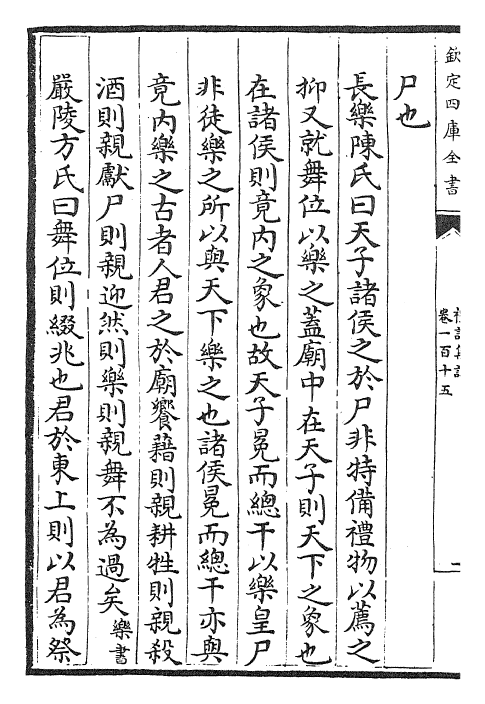 欽定四庫全書
卷一百十五
尸也
長樂陳氏曰天子諸侯之於尸非特備禮物以薦之
抑又就舞位以樂之蓋廟中在天子則天下之象也
在諸侯則竟内之象也故天子冕而總干以樂皇尸
非徒樂之所以與天下樂之也諸侯冕而總干亦與
竟内樂之古者人君之於廟饗藉則親耕牲則親殺
酒則親獻尸則親迎然則樂則親舞不為過矣樂書
嚴陵方氏曰舞位則綴兆也君於東上則以君為祭